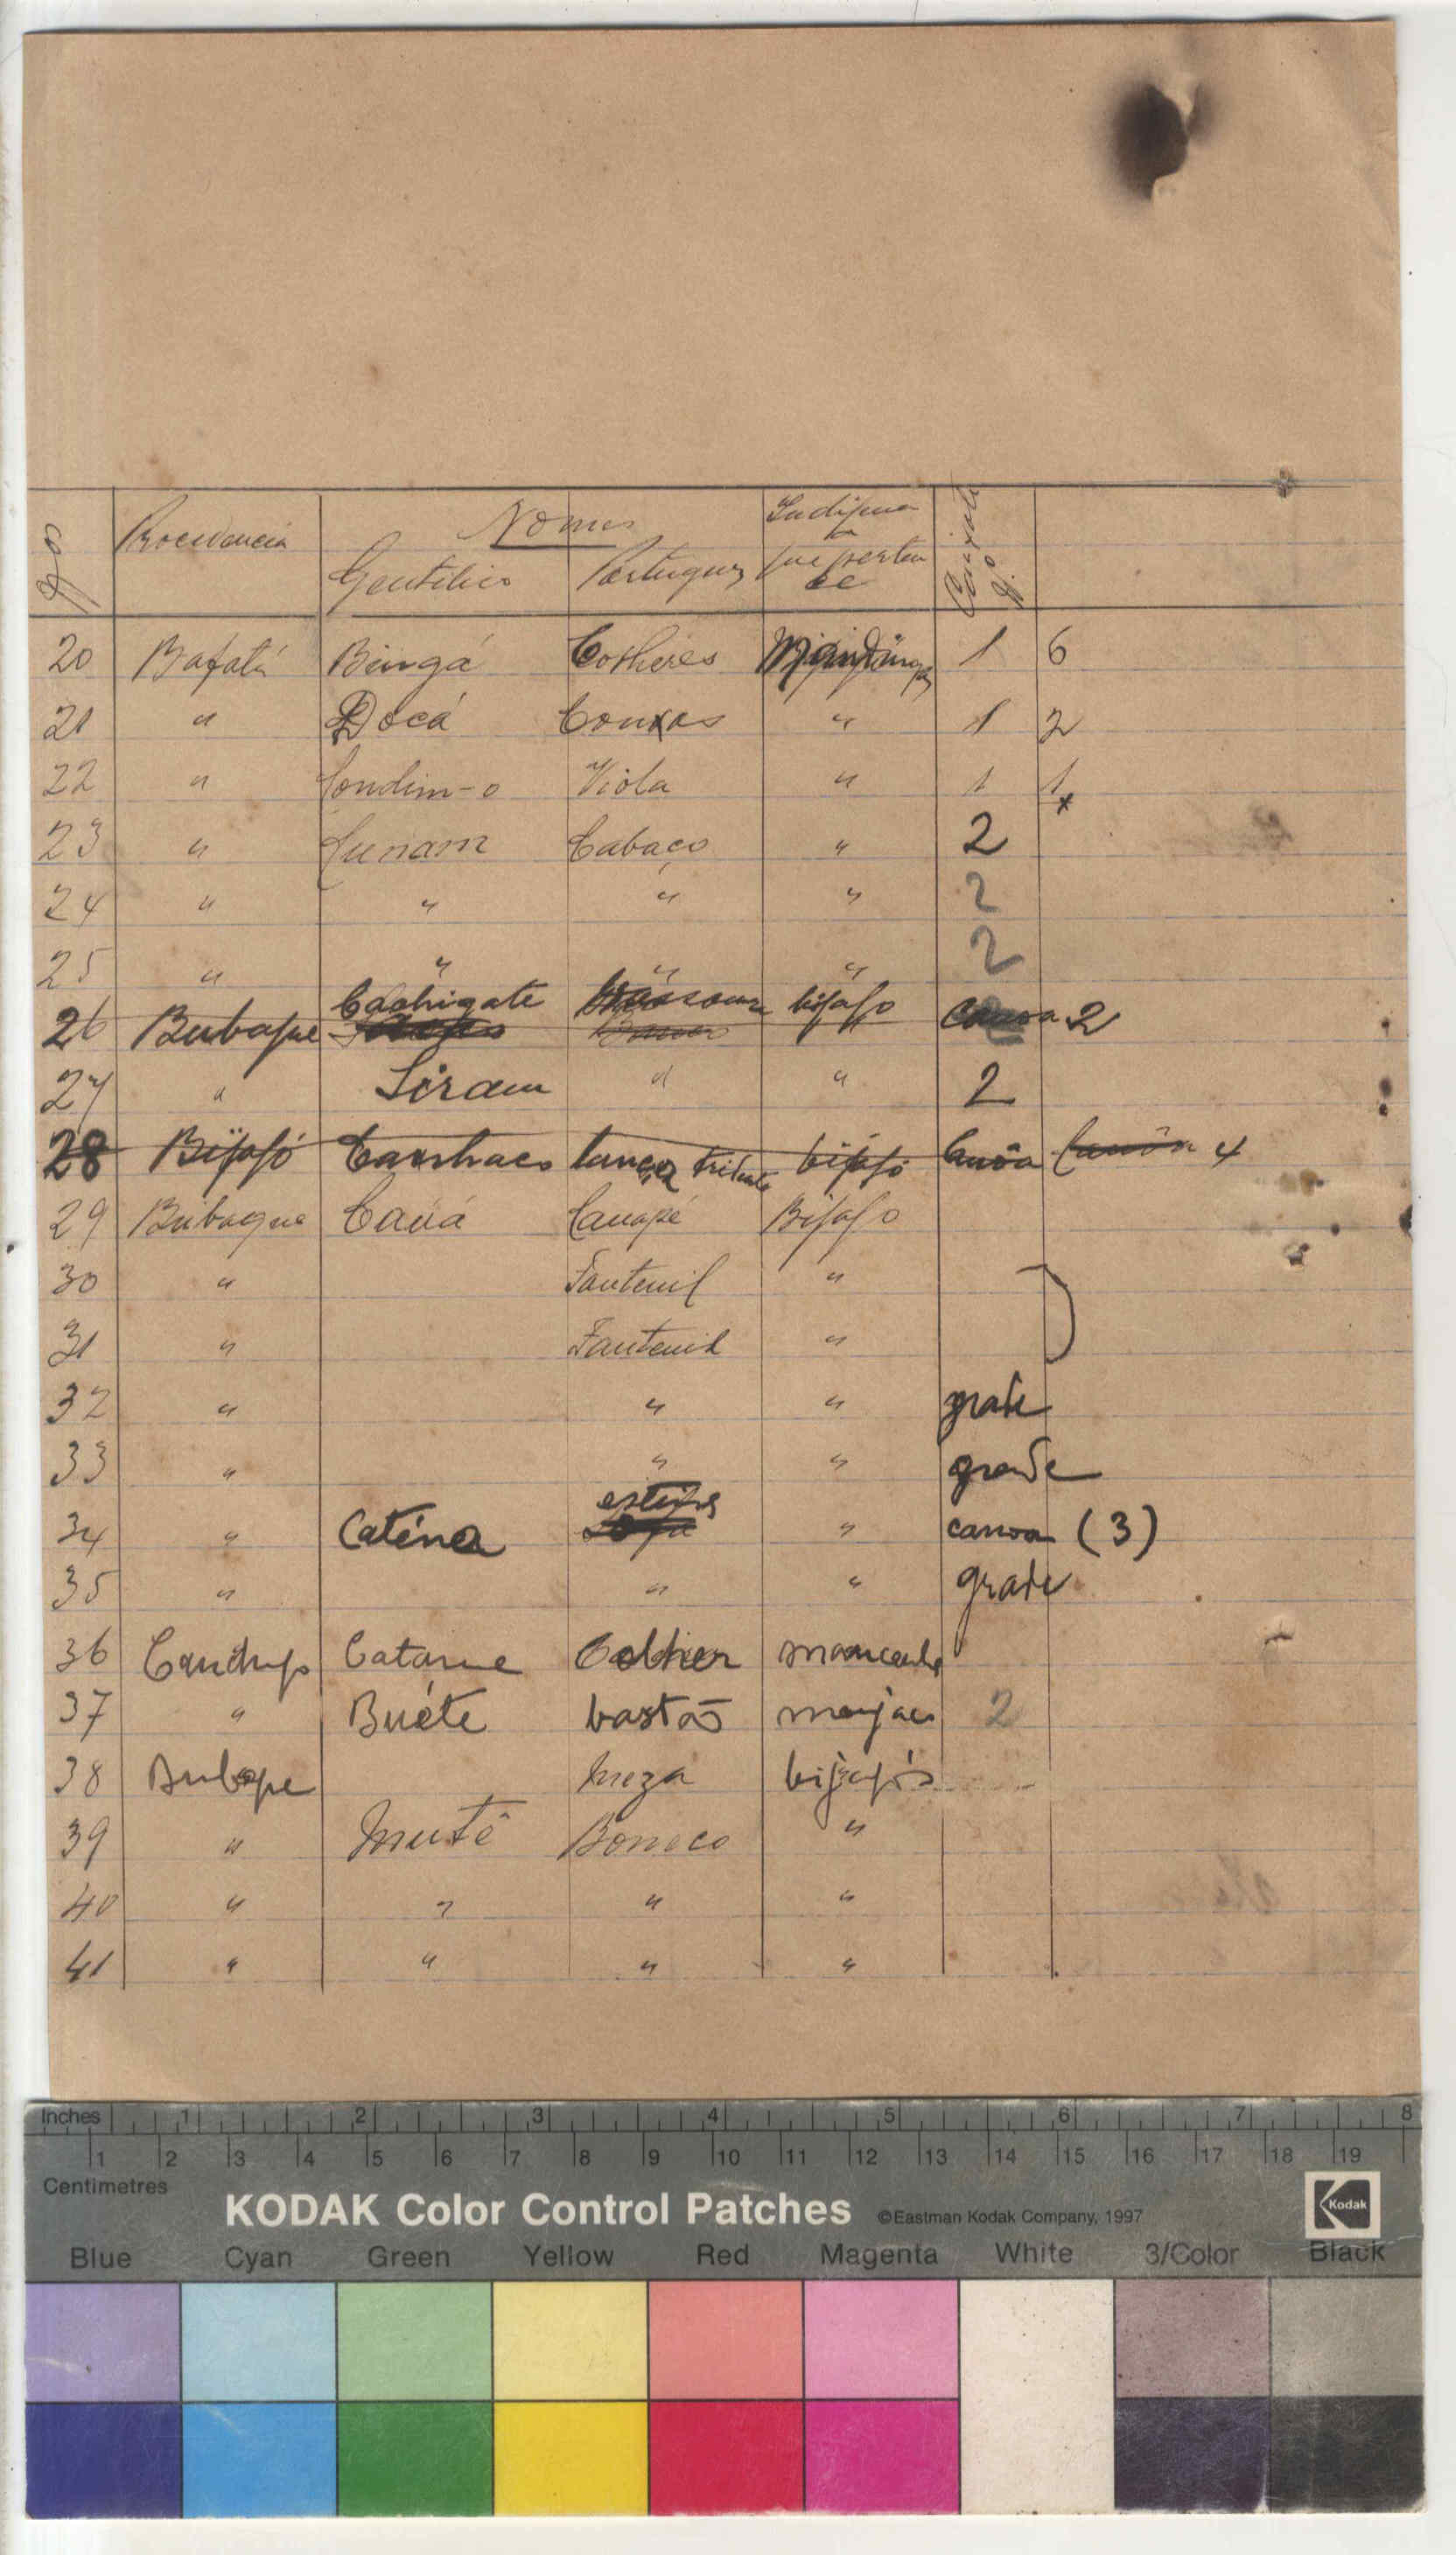 Nos Procedencia Nomes Indijena Caixote
Gentilico Portuguez que perten
ce
20 Bafatá Bingá Colheres Mandinga 1 6
21 " Docá Couxas " 1 2
22 " Condim-o Viola " 1 1
x
23 " Cunam Cabaço " 2
24 " " " " 2
25 " " " " 2
Cachigate
26 Bubaque bijago canoa 2
27 " Siram " " 2
28 Bijagó lança bijagó Canôa Canôa 4
29 Bubaque Cauá Canapé Bijago
30 " Fauteuil "
31 " Fauteuil "
32 " " " grade
33 " " " grade
34 " Caténa Sofá " canoa (3)
35 " " " grade
36 Catame Colher
37 " Buéte bastão manjaco 2
38 Bubaque Meza bijagós
39 " Inutê Boneco "
40 " " " "
41 " " " "
Inches 1 2 3 4 5 6 7 8
1 2 3 4 5 6 7 8 9 10 11 12 13 14 15 16 17 18 19
Centimetres
KODAK Color Control Patches ©Eastman Kodak Company, 1997 Kodak
Blue Cyan Green Yellow Red Magenta White 3/Color Black